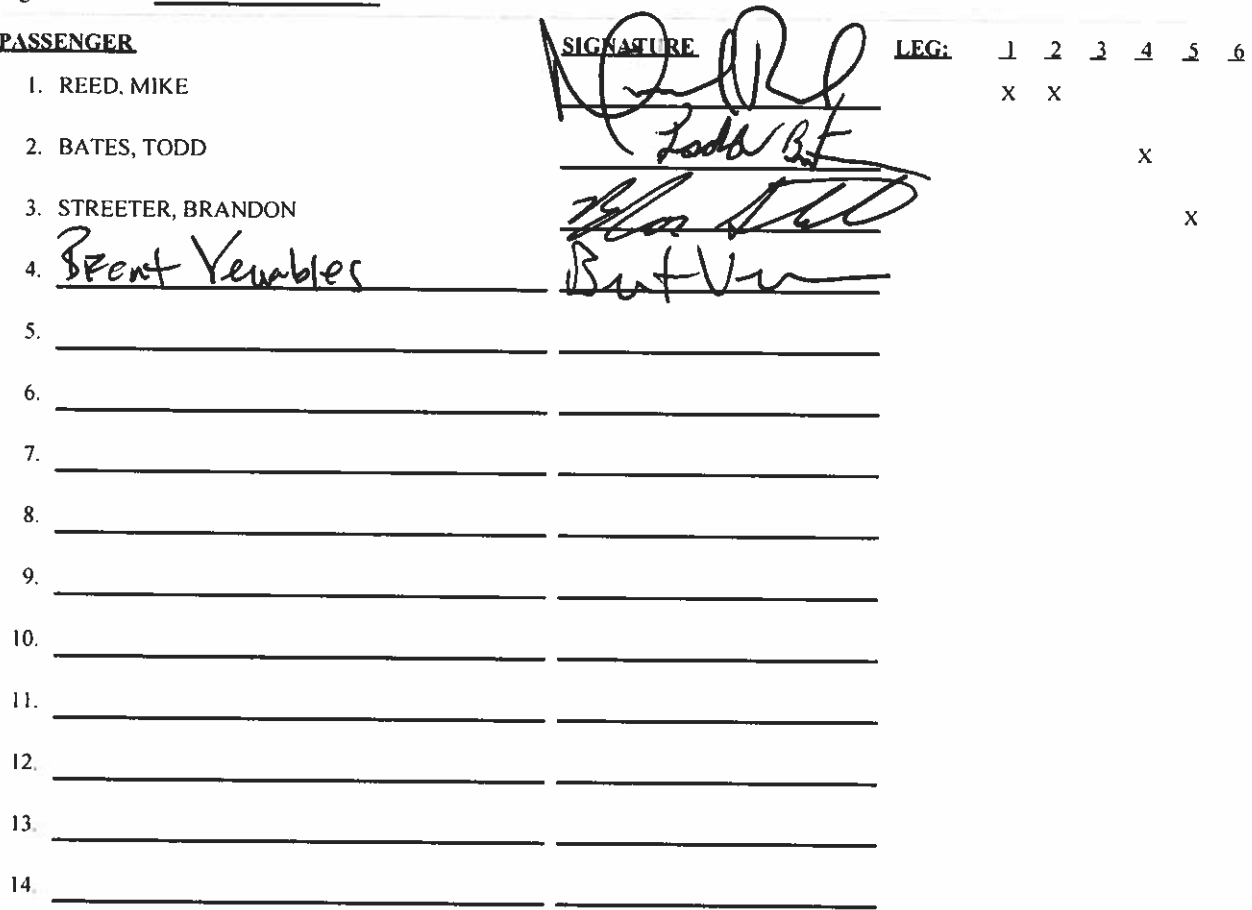 PASSENGER SIGNATURE LEG: 1 2 3 4 5 6
1. REED, MIKE X X
2. BATES, TODD Todd Bates X
3. STREETER, BRANDON X
4. Brent Venables Brent V
5.
6.
7.
8.
9.
10.
11.
12.
13.
14.